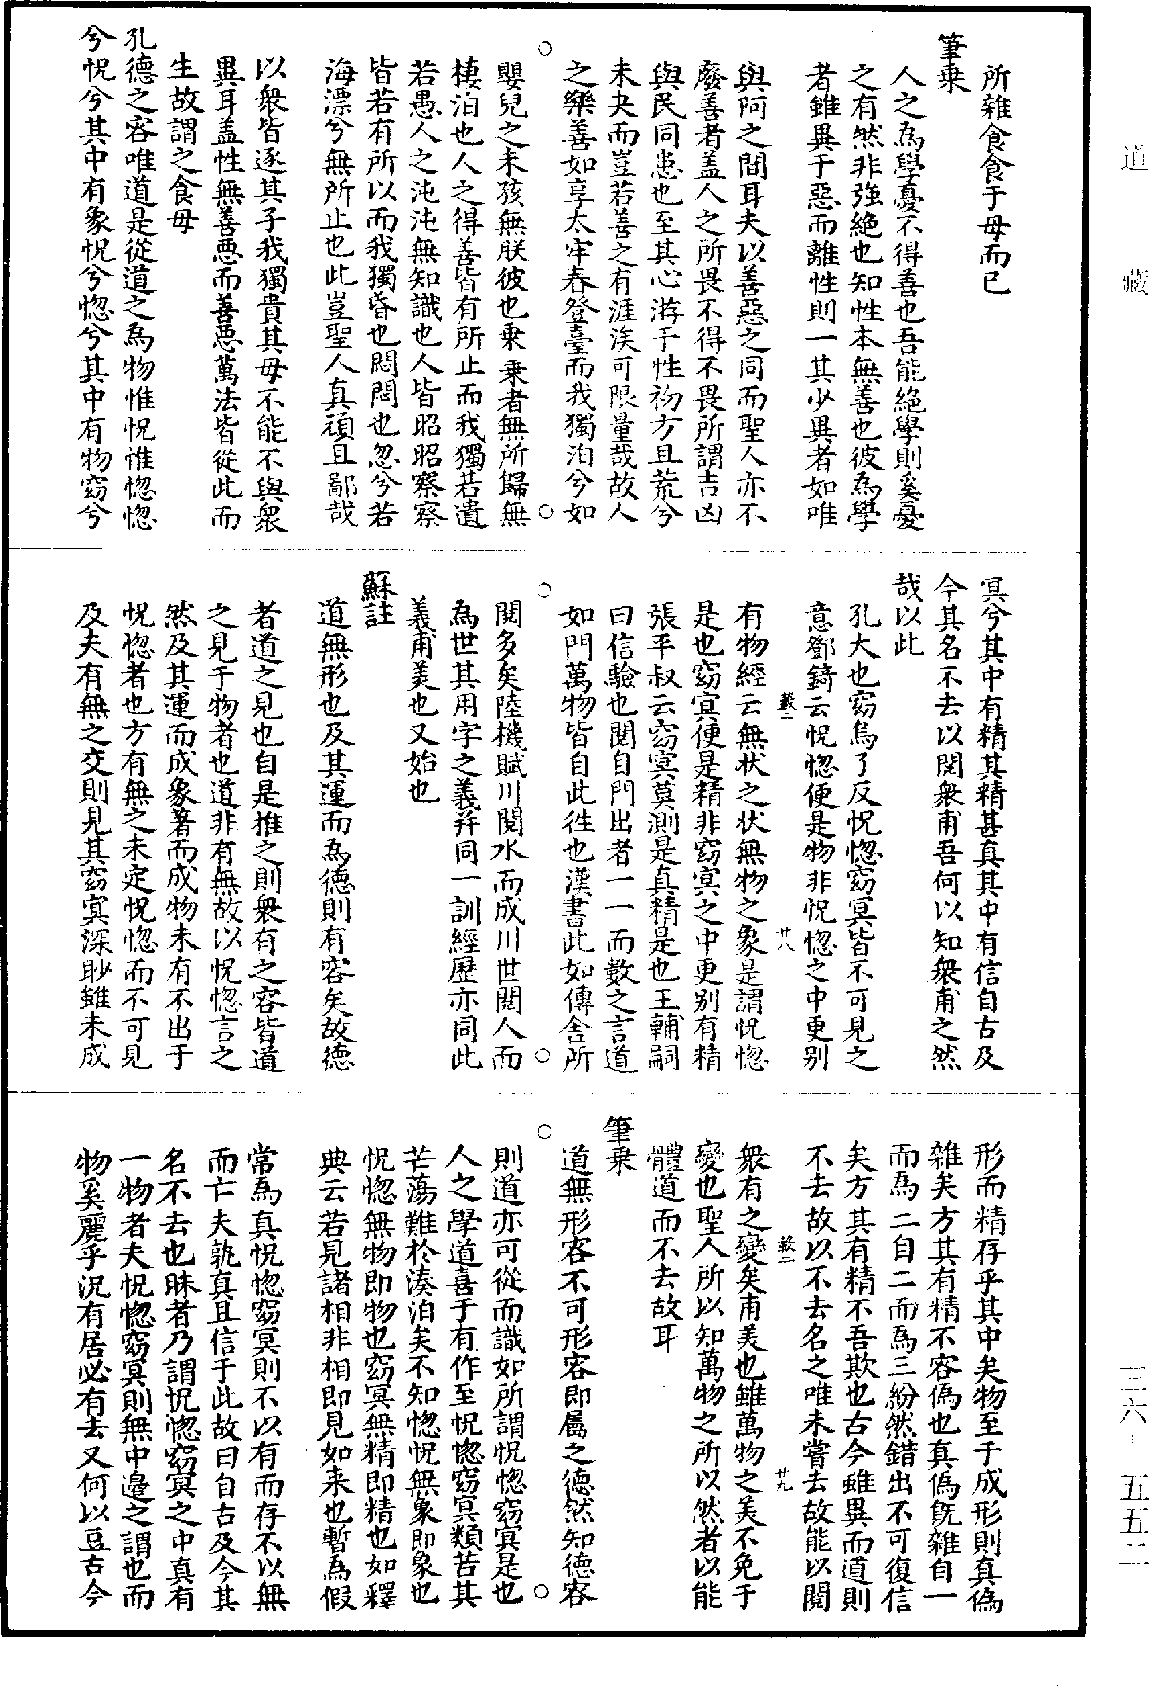 所雜食食于母而已
筆乗
人之為學憂不得善也吾能絶學則奚憂
之有然非強絶也知性本無善也彼為學
者雖異于惡而離性則一其少異者如唯
與阿之間耳夫以善惡之同而聖人亦不
廢善者盖人之所畏不得不畏所謂吉凶
與民同患也至其心游于性初方且荒兮
未央而豈若善之有涯涘可限量哉故人
之樂善如享太牢春登臺而我獨泊兮如
嬰兒之未孩無朕彼也乗乗者無所歸無
棲泊也人之得善皆有所止而我獨若遺
若愚人之沌沌無知識也人皆昭昭察察
皆若有所以而我獨昏也悶悶也忽兮若
海漂兮無所止也此豈聖人真頑且鄙哉
以衆皆逐其子我獨貴其母不能不與衆
異耳盖性無善惡而善惡萬法皆從此而
生故謂之食母
孔德之容唯道是從道之為物惟怳惟惚惚
兮怳兮其中有象怳兮惚兮其中有物窈兮
冥兮其中有精其精甚真其中有信自古及
今其名不去以閱衆甫吾何以知衆甫之然
哉以此
孔大也窈烏了反怳惚窈冥皆不可見之
意鄧錡云怳惚便是物非怳惚之中更别
有物經云無状之状無物之象是謂怳惚
是也窈冥便是精非窈冥之中更别有精
張平叔云窈冥莫測是真精是也王輔嗣
曰信驗也閱自門出者一一而數之言道
如門萬物皆自此徃也漢書此如傳舍所
閱多矣陸機賦川閱水而成川世閱人而
為世其用字之義并同一訓經歷亦同此
義甫美也又始也
蘇註
道無形也及其運而為德則有容矣故德
者道之見也自是推之則衆有之容皆道
之見于物者也道非有無故以怳惚言之
然及其運而成象著而成物未有不出于
怳惚者也方有無之未定怳惚而不可見
及夫有無之交則見其窈冥深眇雖未成
形而精存乎其中矣物至于成形則真偽
雜矣方其有精不容偽也真偽旣雜自一
而為二自二而為三紛然錯出不可復信
矣方其有精不吾欺也古今雖異而道則
不去故以不去名之唯未嘗去故能以閱
衆有之變矣甫美也雖萬物之美不免于
變也聖人所以知萬物之所以然者以能
體道而不去故耳
筆乗
道無形容不可形容即屬之德然知德容
則道亦可從而識如所謂怳惚窈冥是也
人之學道喜于有作至怳惚窈冥類苦其
芒蕩難於湊泊矣不知惚怳無象即象也
怳惚無物即物也窈冥無精即精也如釋
典云若見諸相非相即見如来也暫為假
常為真怳惚窈冥則不以有而存不以無
而亡夫孰真且信于此故曰自古及今其
名不去也昧者乃謂怳惚窈冥之中真有
一物者夫怳惚窈冥則無中邉之謂也而
物奚麗乎況有居必有去又何以亘古今
道藏
三六·五五二